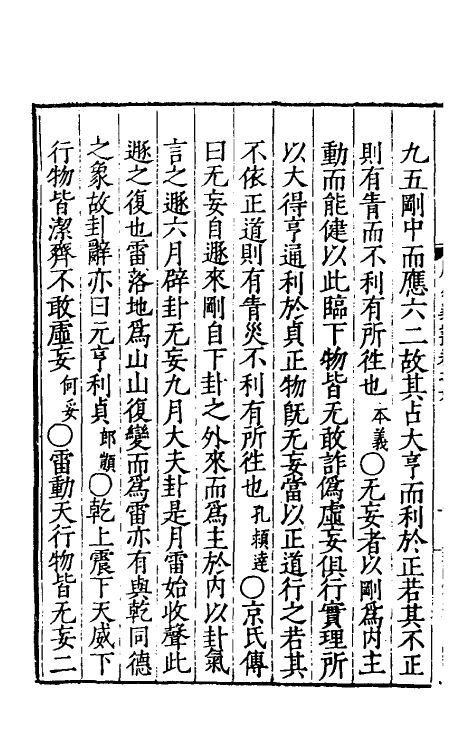 九五剛中而應六二故其占大亨而利於正若其不正
則有眚而不利有所往也本義〇无妄者以剛爲内主
動而能健以此臨下物皆无敢詐僞虛妄俱行實理所
以大得亨通利於貞正物旣无妄當以正道行之若其
不依正道則有眚災不利有所往也孔穎達〇京氏傳
曰无妄自遯來剛自下卦之外來而爲主於内以卦氣
言之遯六月辟卦无妄九月大夫卦是月雷始收聲此
遯之復也雷落地爲山山復變而爲雷亦有與乾同德
之象故卦辭亦曰元亨利貞郎顗〇乾上震下天威下
行物皆潔齊不敢虛妄何妥〇雷動天行物皆无妄二